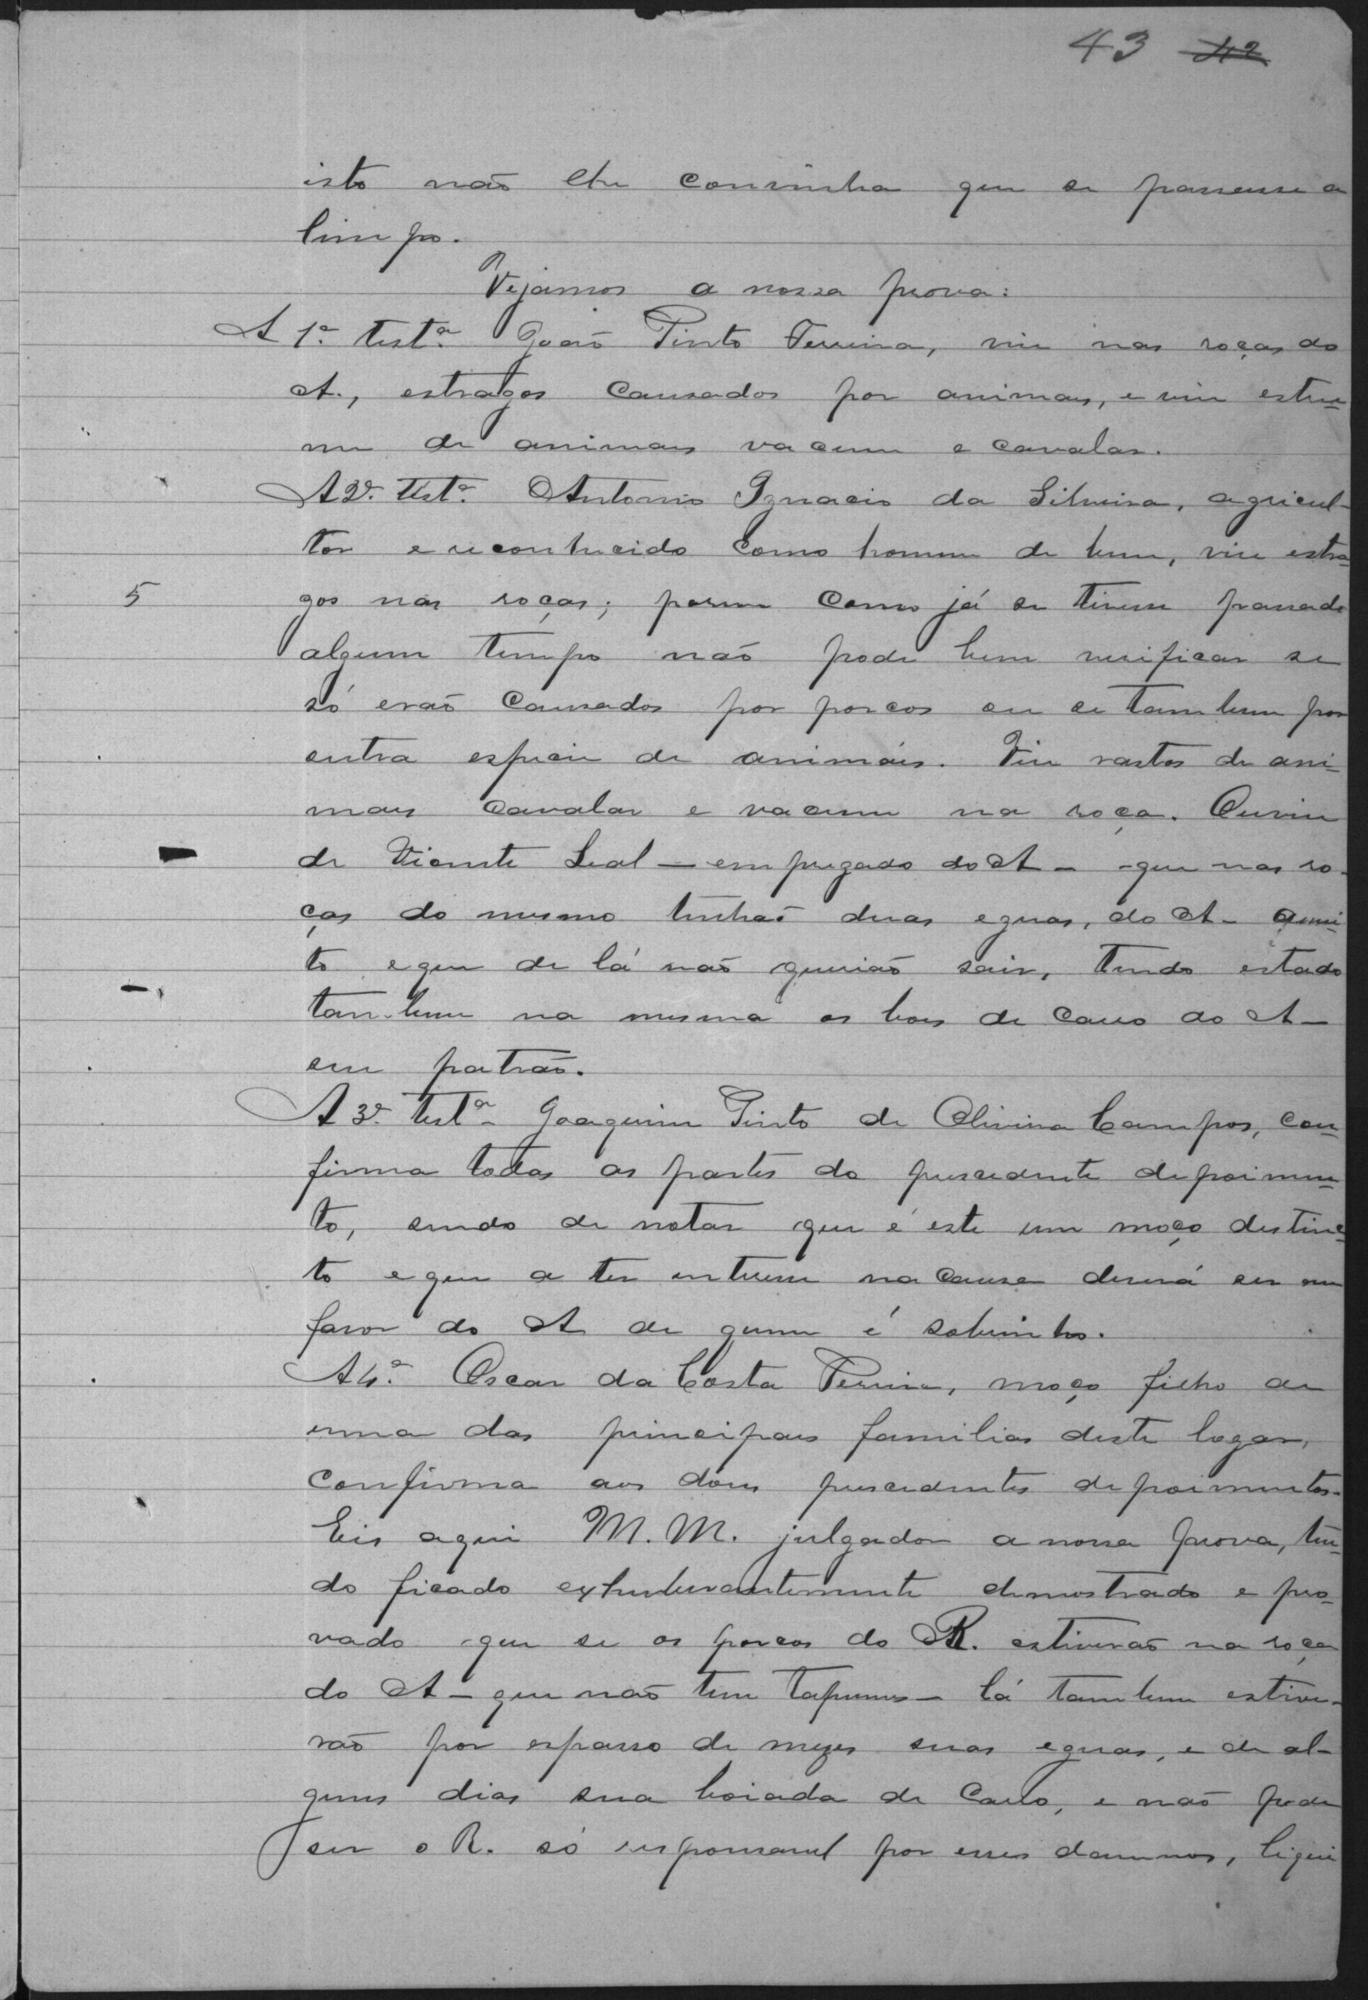 43 42
isto não lhe convinha que se passasse a
limpo.
Vejamos a nossa prova:
A 1ª testª João Pinto Ferreira, viu nas roças do
A., estragos causados por animaes, e viu estru-
me de animaes vacum e cavalar.
A 2ª testª Antonio Ignacio da Silveira, agricul-
tor e reconhecido como homem de bem, viu estra-
gos nas roças; porem como já se tivesse passado
5
algum tempo não pode bem verificar se
só erão causados por porcos ou se tambem por
outra especie de animáis. Viu rastos de ani-
maes cavalar e vacum na roça. Ouviu
de Vicente Leal – empregado do A – que nas ro-
ças do mesmo tinhão duas eguas, do A –
to e que de lá não querião sair, tendo estado
tambem na mesma os bois de carro do A –
seu patrão.
A 3ª testª Joaquim Pinto de Oliveira Campos, con-
firma todas as partes do precedente depoimen-
to, sendo de notar que é este um moço destinc-
to e que a ter interesse na causa deverá ser em
favor do A de quem é sobrinho.
A 4ª Oscar da Costa Pereira, moço filho de
uma das principaes familias deste logar,
confirma aos dous precedentes depoimentos.
Eis aqui M. M. julgador a nossa prova, ten-
do ficado exhuberantemente demostrado e pro-
vado que se os porcos do R. estiverão na roça
do A – que não tem tapumes – lá tambem estive-
rão por espasso de mezes suas eguas, e de al-
guns dias sua boiada de carro, e não pode
ser o R. só responsavel por esses damnos, liqui